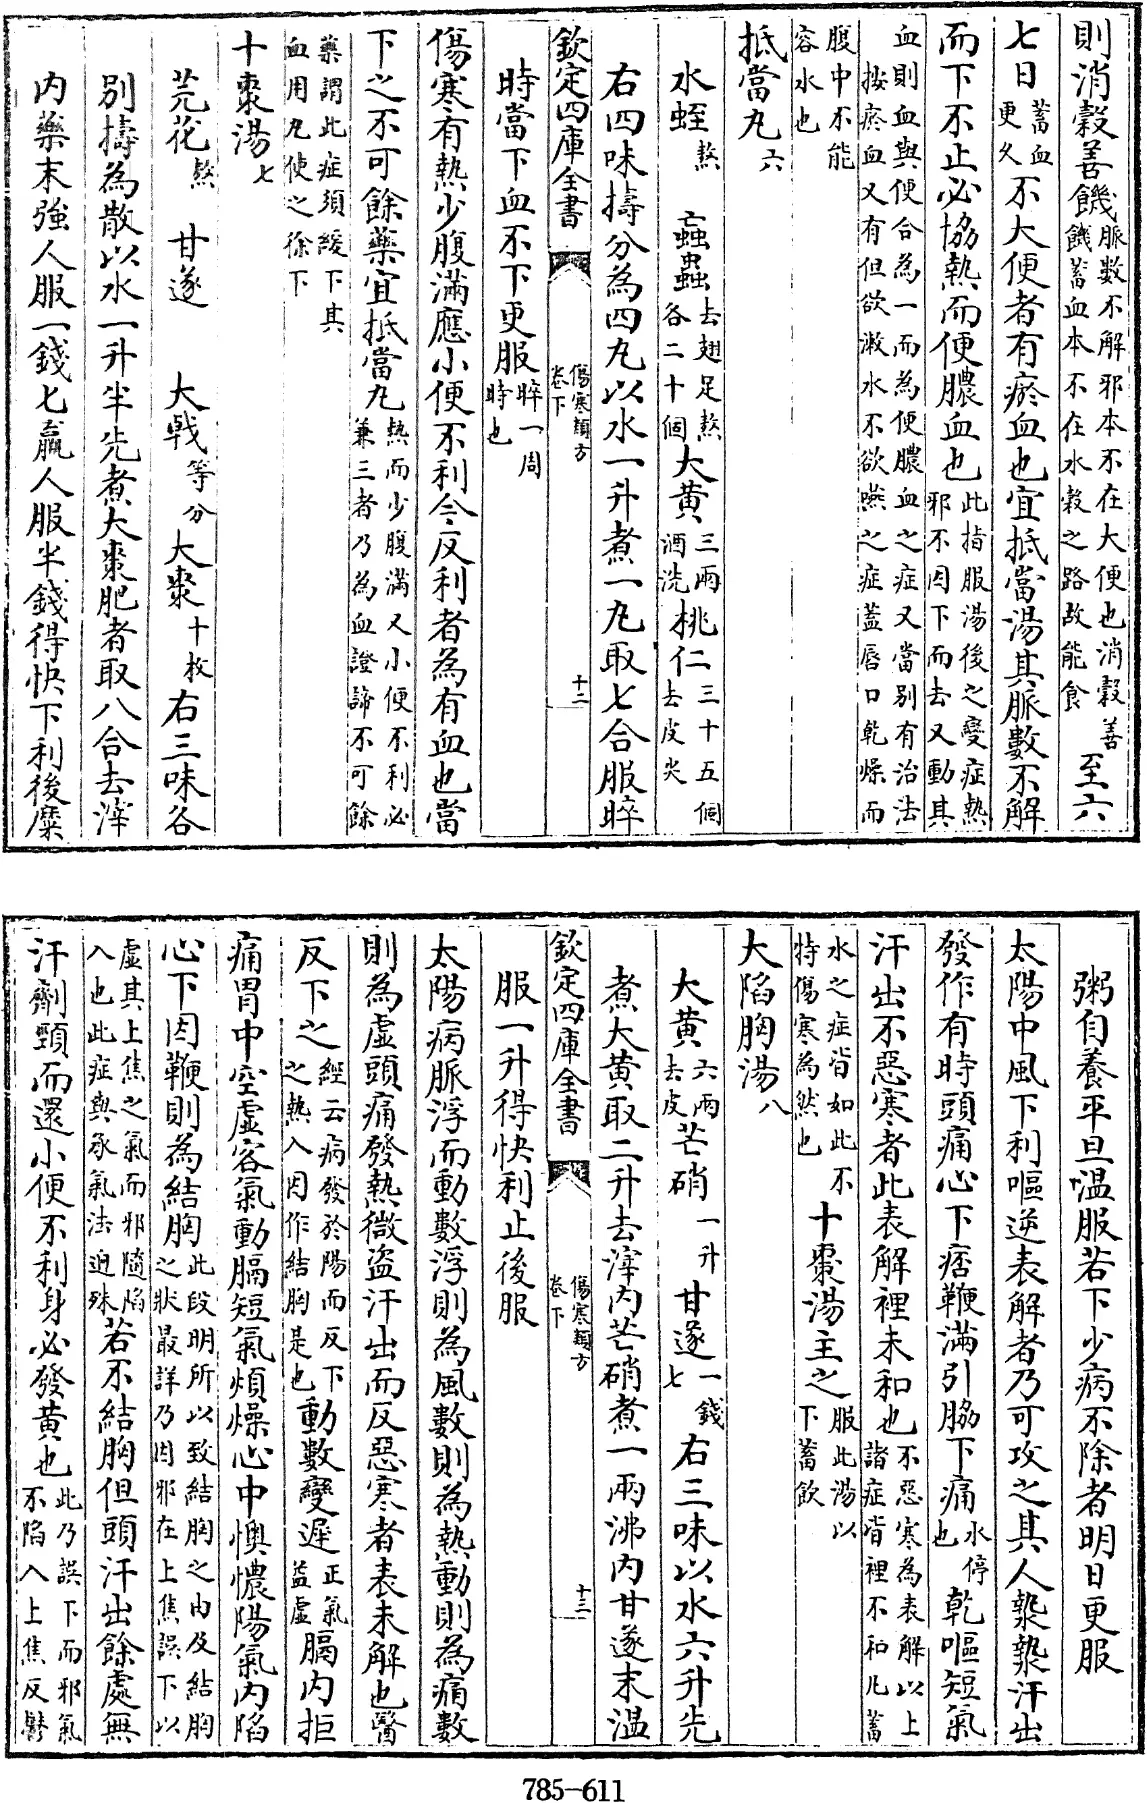 則消穀善饑脈數不解邪本不在大便也消穀善饑蓄血本不在水穀之路故能食至六
七日蓄血更久不大便者有瘀血也宜抵當湯其脈數不解
而下不止必協熱而便膿血也此指服湯後之變症熱邪不因下而去又動其
血則血與便合為一而為便膿血之症又當别有治法按瘀血又有但欲漱水不欲嚥之症蓋唇口乾燥而
腹中不能容水也
抵當丸六
水蛭熬　䗪蟲去翅足熬各二十個大黃三兩酒洗桃仁二三十五個去皮尖
右四味擣分為四丸以水一升煮一丸取七合服晬
欽定四庫全書　傷寒類方卷下　十二
時當下血不下更服晬一周時也
傷寒有熱少腹滿應小便不利今反利者為有血也當
下之不可餘藥宜抵當丸熱而少腹滿又小便不利必兼三者乃為血證諦不可餘
藥謂此症須緩下其血用丸使之徐下
十棗湯七
芫花熬　甘遂　大戟等分大棗十枚右三味各
別擣為散以水一升半先煮大棗肥者取八合去滓
内藥末強人服一錢匕羸人服半錢得快下利後糜
粥自養平旦溫服若下少病不除者明日更服
太陽中風下利嘔逆表解者乃可攻之其人漐漐汗出
發作有時頭痛心下痞鞕滿引脇下痛水停也乾嘔短氣
汗出不惡寒者此表解裡未和也不惡寒為表解以上諸症皆裡不和凡蓄
水之症皆如此不特傷寒為然也十棗湯主之服此湯以下蓄飲
大陷胸湯八
大黃六兩去皮芒硝一升甘遂一錢七右三味以水六升先
煮大黃取二升去滓内芒硝煮一兩沸内甘遂末溫
欽定四庫全書　傷寒類方卷下　十三
服一升得快利止後服
太陽病脈浮而動數浮則為風數則為熱動則為痛數
則為虛頭痛發熱微盜汗出而反惡寒者表未解也醫
反下之經云病發於陽而反下之熱入因作結胸是也動數變遲正氣益虛膈内拒
痛胃中空虛客氣動膈短氣煩燥心中懊憹陽氣内陷
心下因鞕則為結胸此段明所以致結胸之由及結胸之狀最詳乃因邪在上焦誤下以
虛其上焦之氣而邪隨陷入也此症與承氣法迥殊若不結胸但頭汗出餘處無
汗劑頸而還小便不利身必發黃也此乃誤下而邪氣不陷入上焦反鬱
785-611